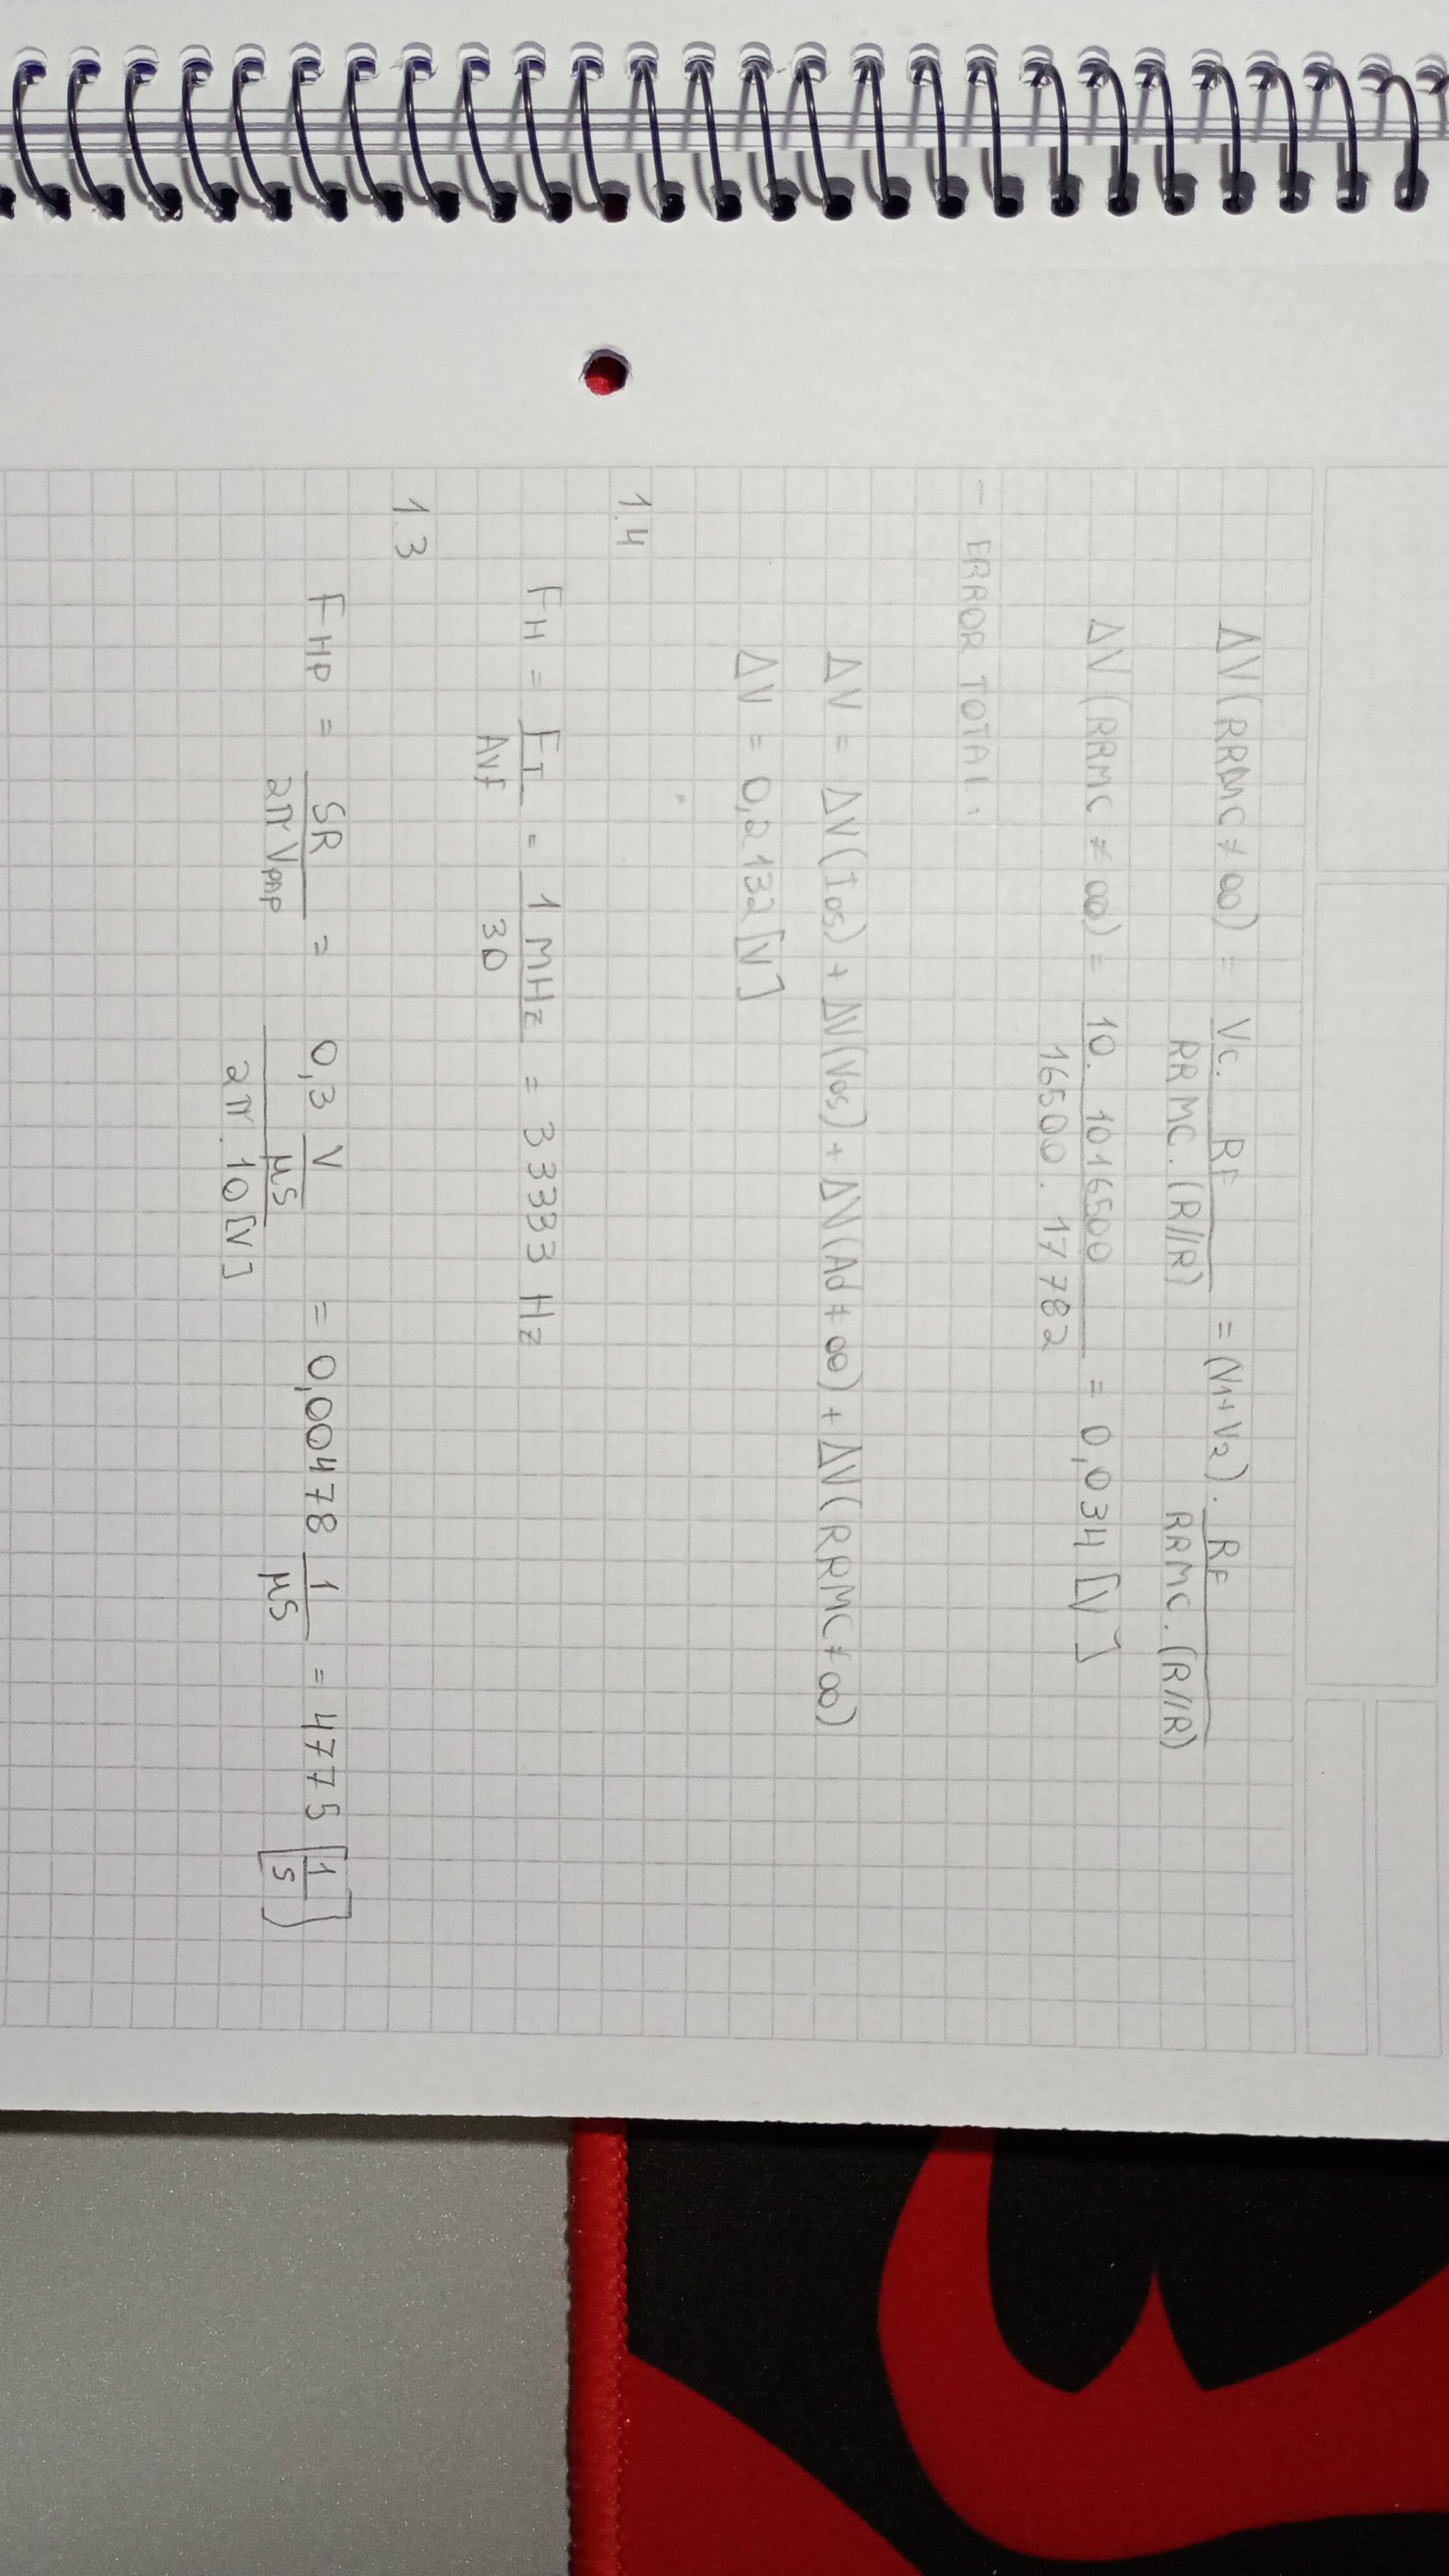 ΔV(RRMC ≠ ∞) = Vc. RF / RRMC.(R//R) = (V1+V2). RF / RRMC.(R//R)
ΔV(RRMC ≠ ∞) = 10. 1016500 / 16500. 17782 = 0,034 [V]
- ERROR TOTAL:
ΔV = ΔV(Ios) + ΔV(Vos) + ΔV(Ad ≠ ∞) + ΔV(RRMC ≠ ∞)
ΔV = 0,2132 [V]
1.4
FH = FT / AVF = 1 MHz / 30 = 33333 Hz
1.3
FHP = SR / 2π VPAP = 0,3 V/μS / 2π. 10[V] = 0,00478 1/μS = 4775 [1/s]